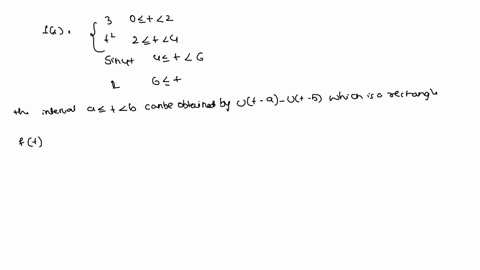 f(t) = { 3 0 ≤ t < 2
t² 2 ≤ t < 4
Sin4t 4 ≤ t < 6
2 6 ≤ t
the interval a ≤ t < b can be obtained by U(t - a) - U(t - b) which is a rectangle
f(t)